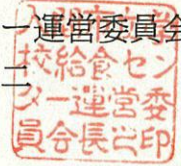 ー運営委員会
二
校給食セン
ター運営委
員会長之印